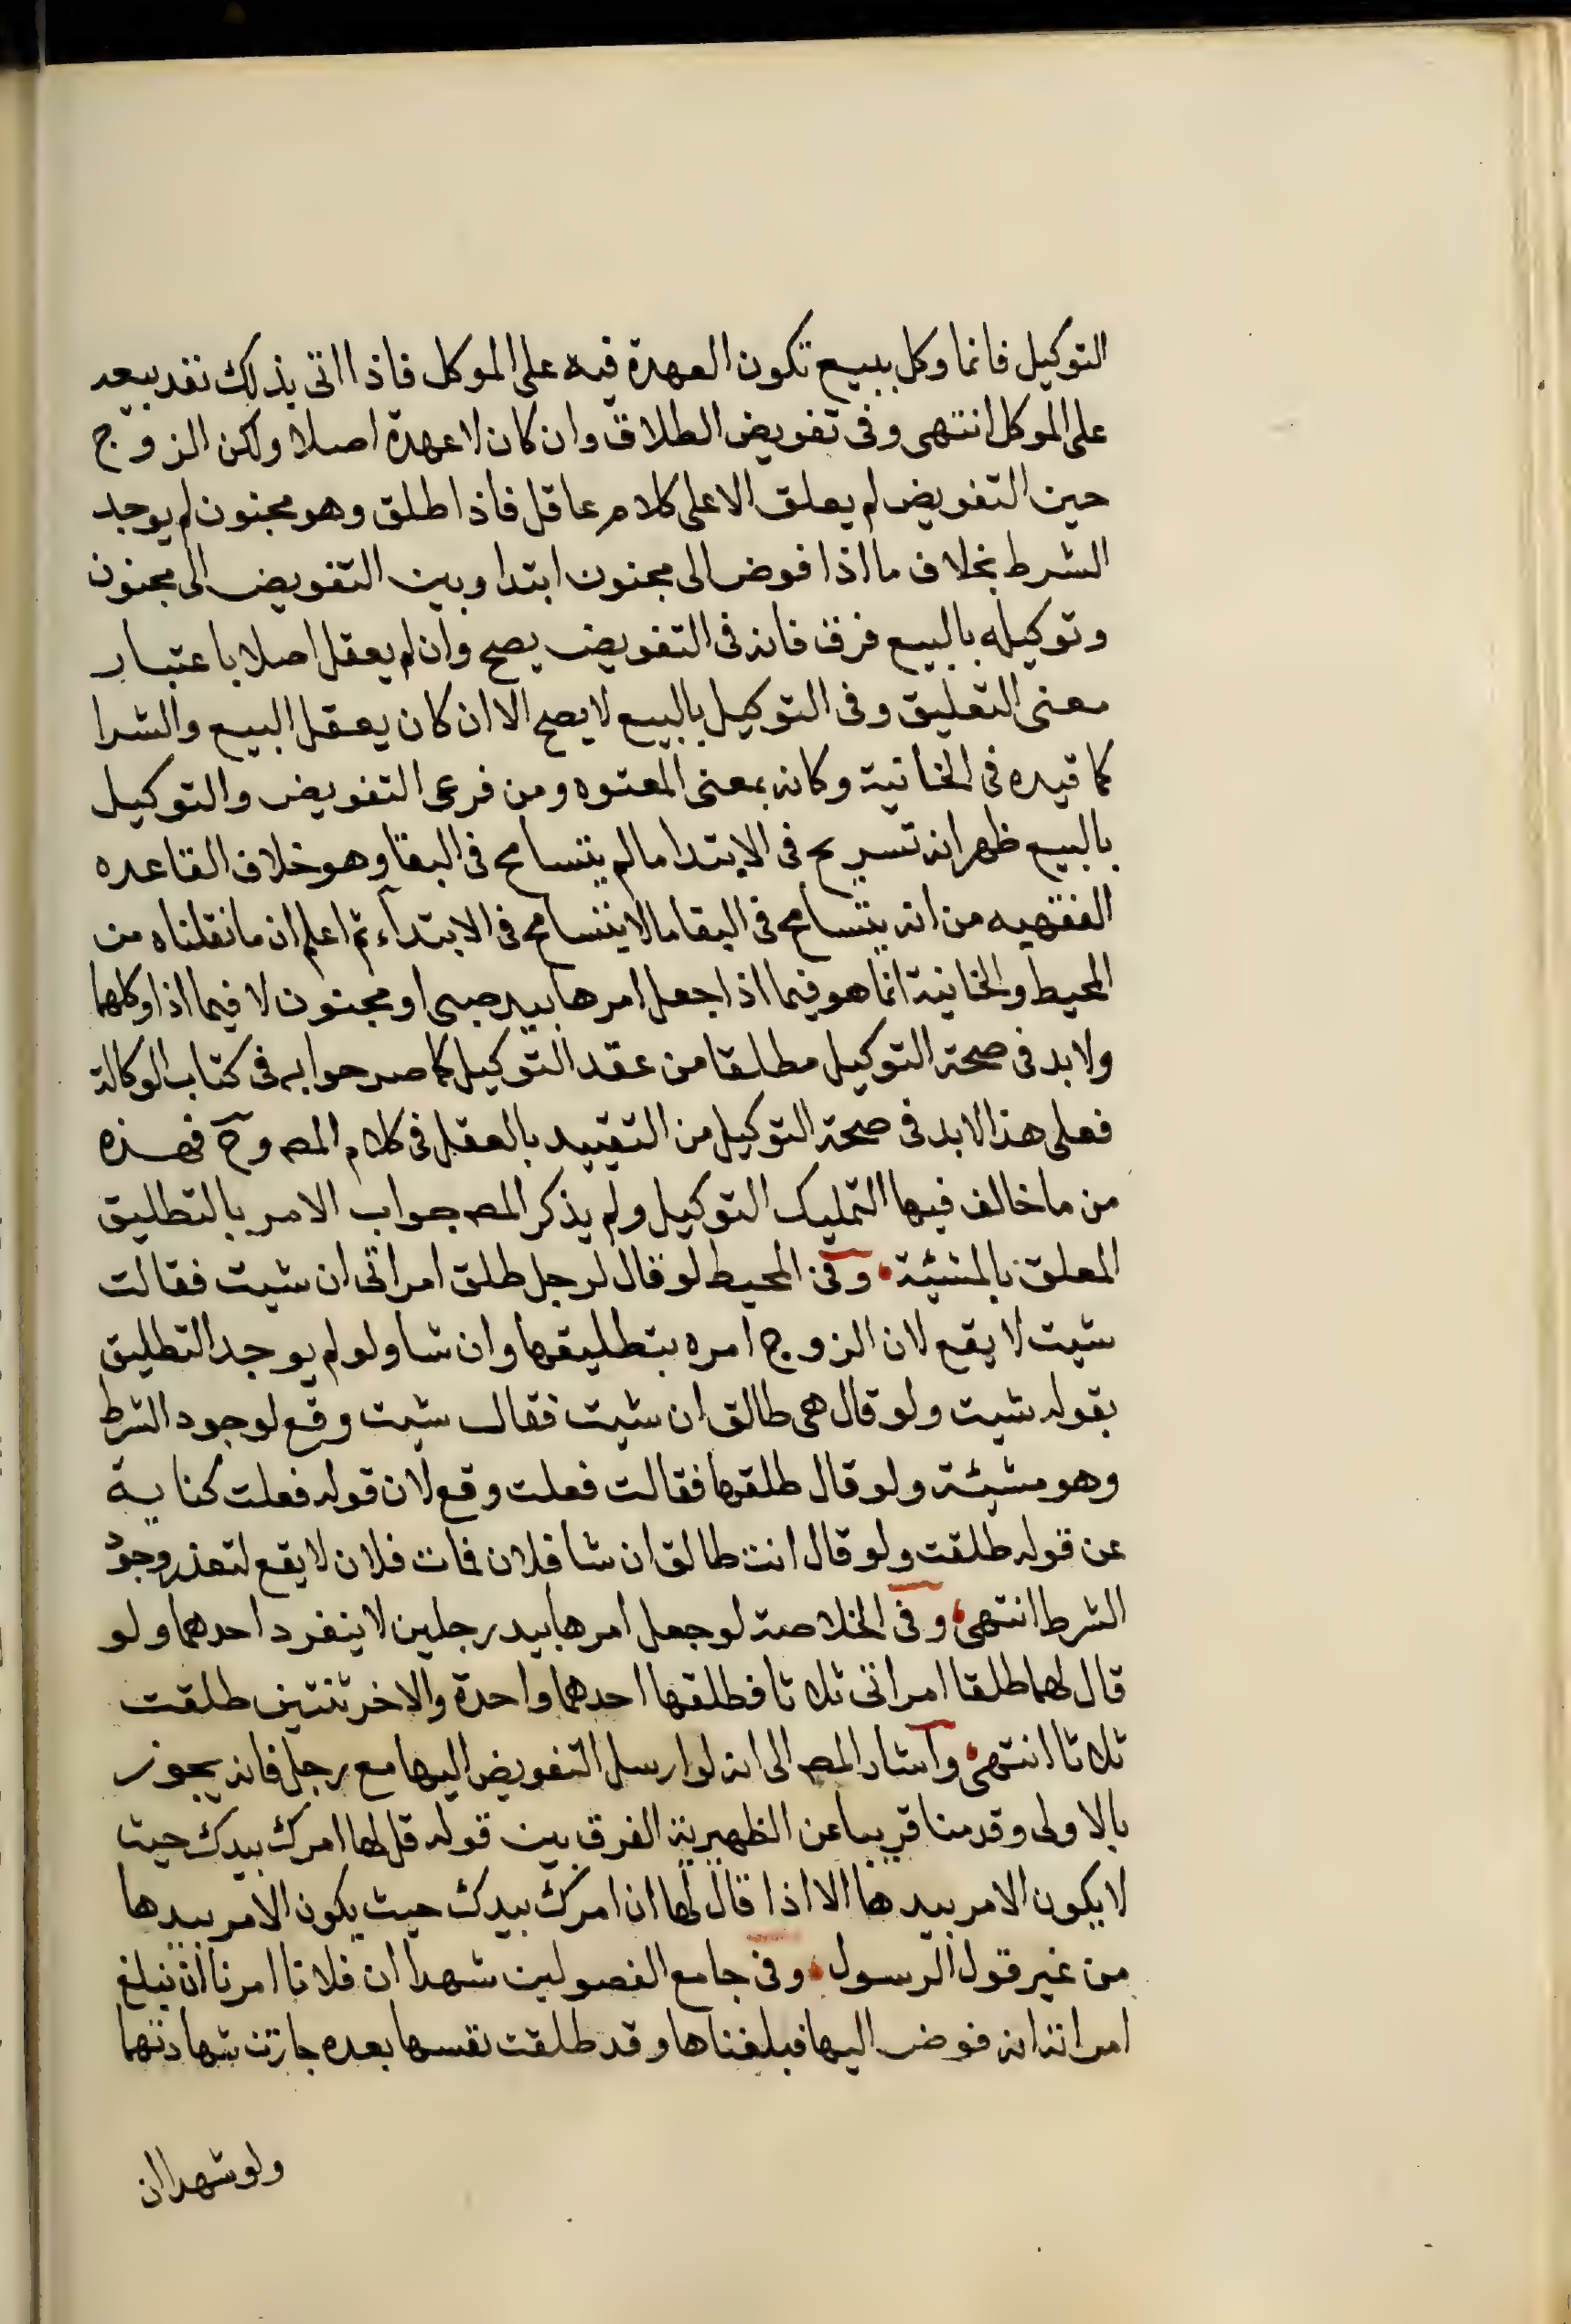 التوكيل فانما وكل ببيع تكون العهدة فيه على الموكل فاذا اتى بذلك نفد بيعه
على الموكل انتهى وفى تفويض الطلاق وان كان لا عهدة اصلا ولكن الزوج
حين التفويض لم يعلق الا على كلام عاقل فاذا طلق وهو مجنون لم يوجد
الشرط بخلاف ما اذا فوض الى مجنون ابتدا وبين التفويض الى مجنون
وتوكيله بالبيع فرق فانه فى التفويض يصح وان لم يعقل اصلا باعتبار
معنى التعليق وفى التوكيل بالبيع لا يصح الا ان كان يعقل البيع والشرا
كما قيده فى الخانية وكانه بمعنى المعتوه ومن فرعى التفويض والتوكيل
بالبيع ظهر انه تسريح فى الابتدا ما لم يتسامح فى البقا وهو خلاف القاعده
الفقهيه من انه يتسامح فى البقا ما لا يتسامح فى الابتدآء ثم اعلم ان ما نقلناه من
المحيط والخانية انما هو فيما اذا جعل امرها بيد صبى او مجنون لا فيما اذا وكلهما
ولا بد فى صحة التوكيل مطلقا من عقد التوكيل كما صرحوا به فى كتاب الوكالة
فعلى هذا لا بد فى صحة التوكيل من التقييد بالعقل فى كلام المصـ وح فهذه
من ما خالف فيها التمليك التوكيل ولم يذكر المصـ جواب الامر بالتطليق
المعلق بالمشيئة وفى المحيط لو قال لرجل طلق امراتى ان شيت فقالت
شيت لا يقع لان الزوج امره بتطليقها وان شا ولو لم يوجد التطليق
بقوله شيت ولو قال هى طالق ان شيت فقال شيت وقع لوجود الشرط
وهو مشيئة ولو قال طلقها فقالت فعلت وقع لان قوله فعلت كناية
عن قوله طلقت ولو قال انت طالق ان شا فلان فمات فلان لا يقع لتعذر وجود
الشرط انتهى وفى الخلاصة لو جعل امرها بيد رجلين لا ينفرد احدهما ولو
قال لهما طلقا امراتى ثلاثا فطلقها احدهما واحدة والاخر ثنتين طلقت
ثلاثا انتهى واشار المصـ الى انه لو ارسل التفويض اليها مع رجل فانه يجوز
بالاولى وقدمنا قريبا عن الظهيرية الفرق بين قوله قل لها امرك بيدك حيث
لا يكون الامر بيدها الا اذا قال لها ان امرك بيدك حيث يكون الامر بيدها
من غير قول الرسول وفى جامع الفصولين شهدا ان فلانا امرنا ان نبلغ
امراته انه فوض اليها فبلغناها وقد طلقت نفسها بعده جازت شهادتهما
ولو شهدا ان